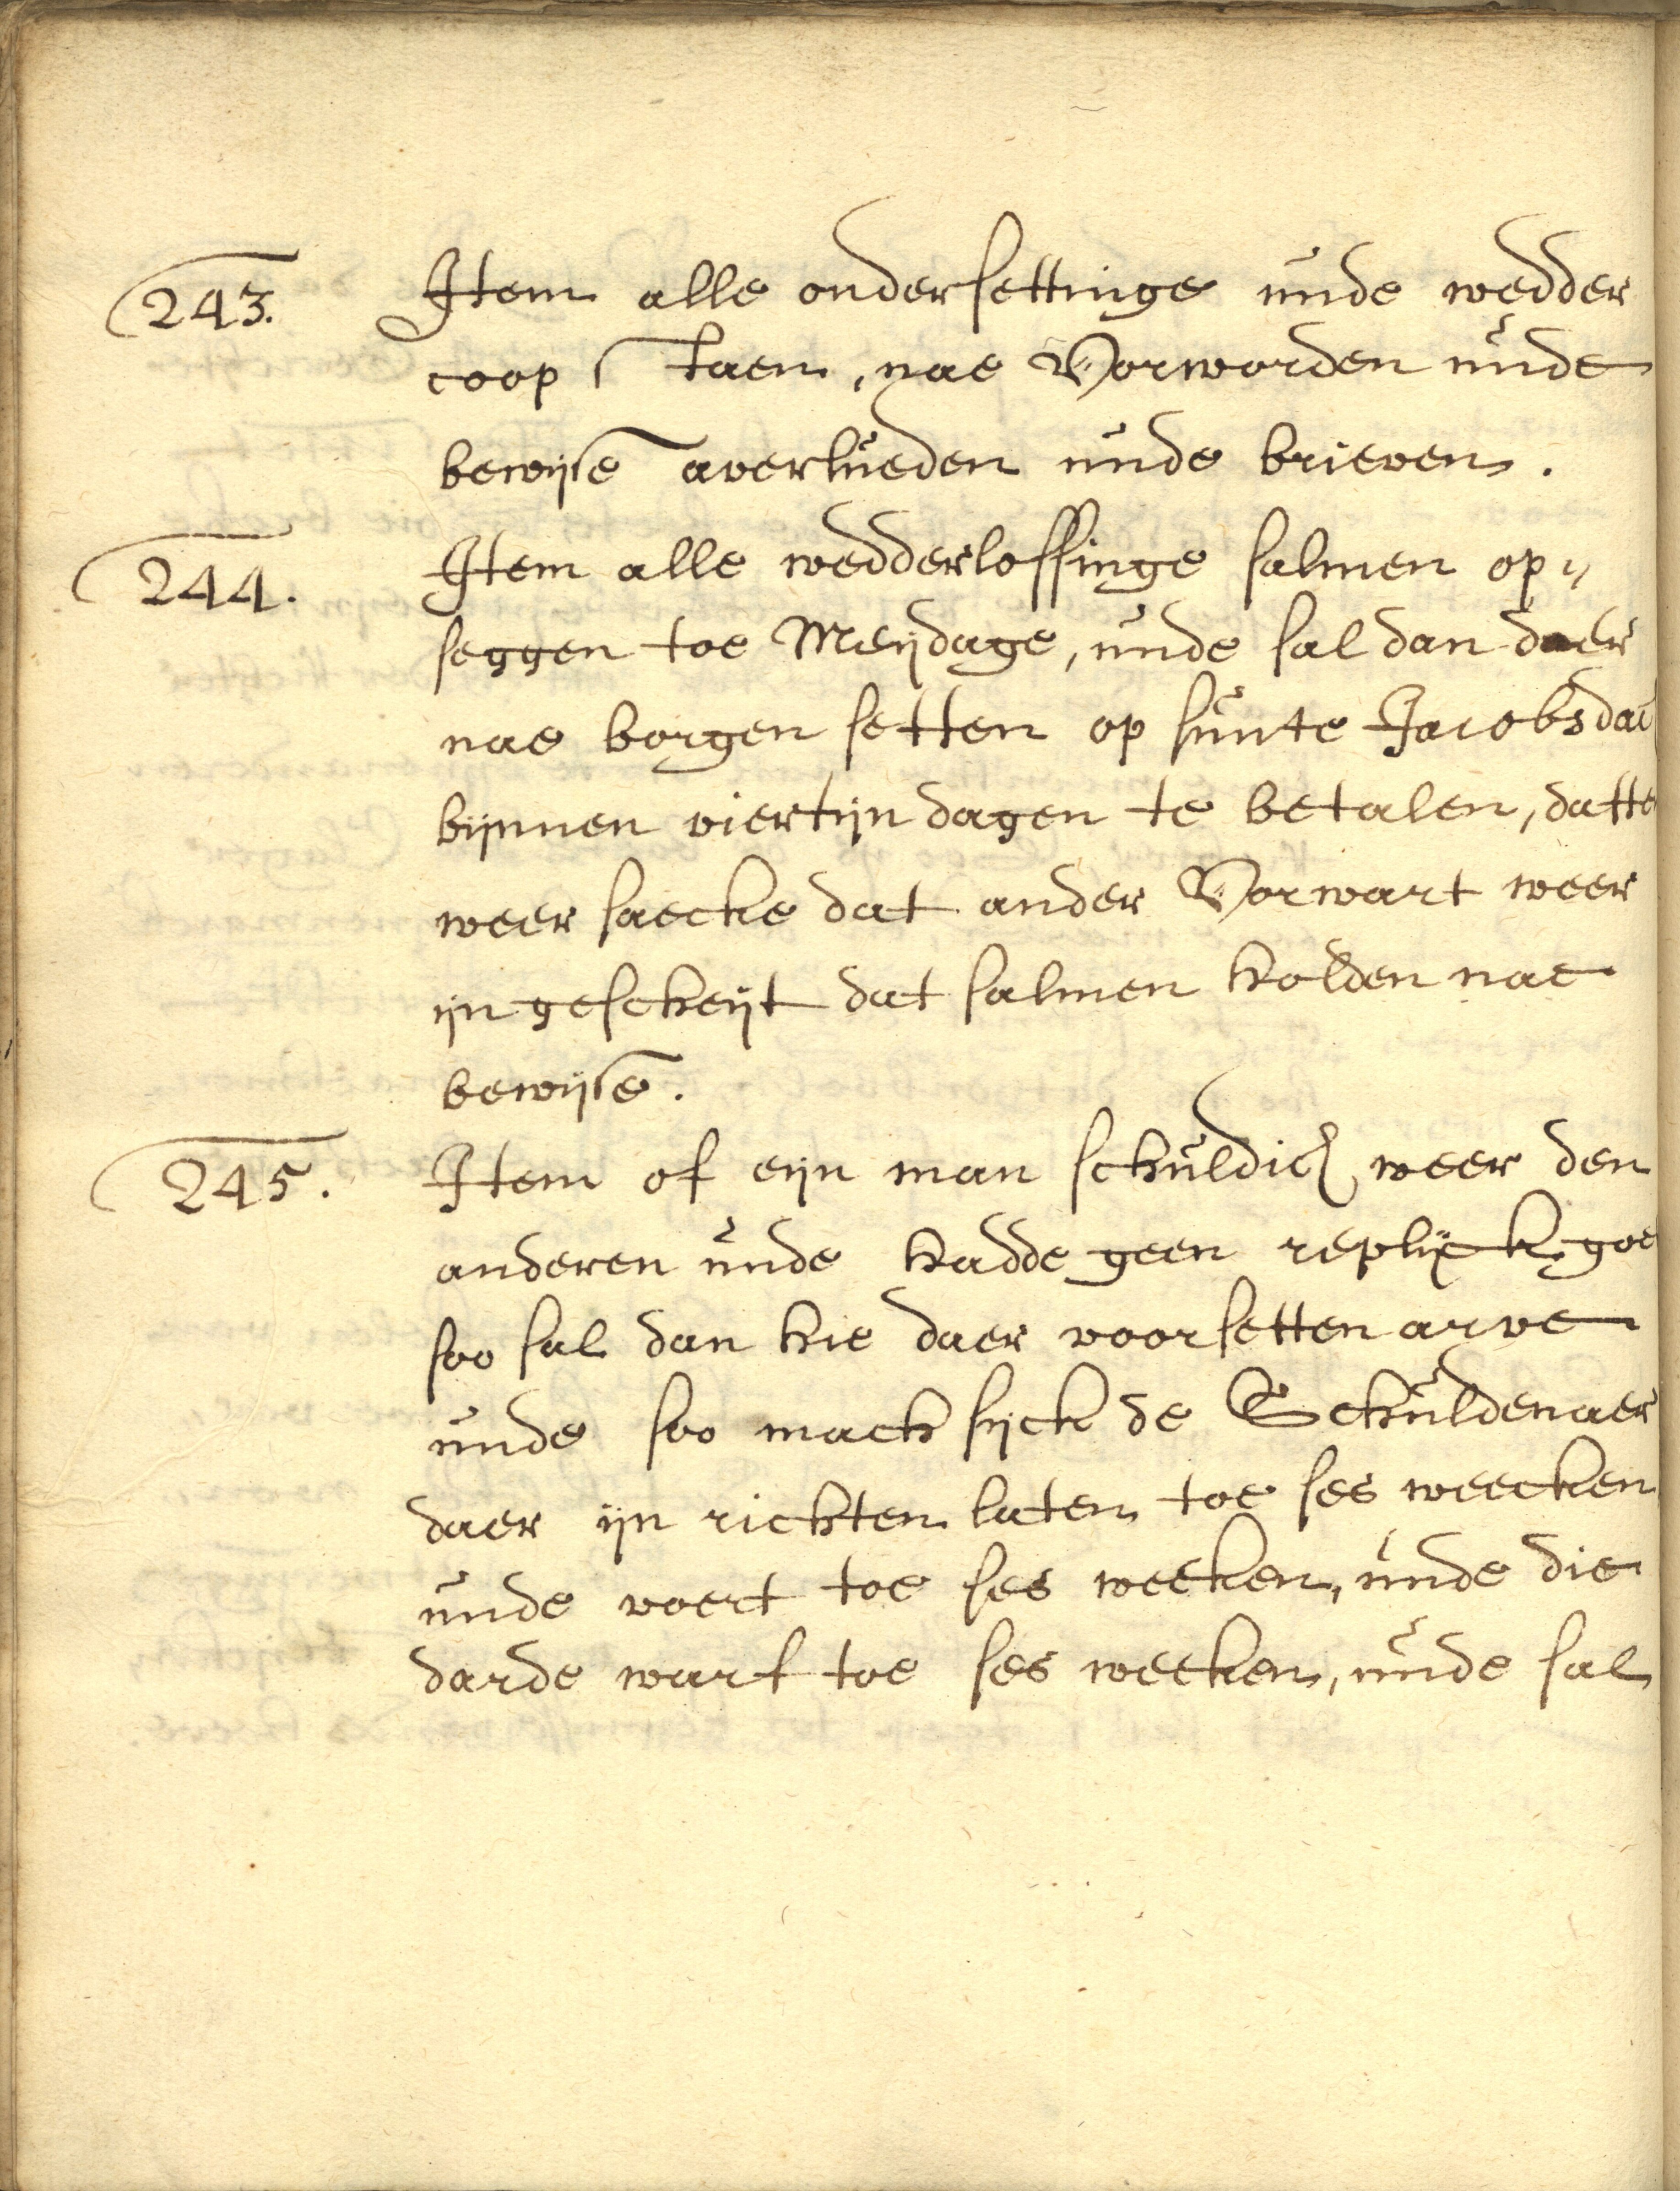 243. Item alle ondersettinge unde wedder
coop staen, nae Vorworden unde
bewijse averlueden unde brieven.
244. Item alle wedderlossinge salmen op„
seggen toe Meijdage, unde sal dan daer
nae borgen setten op sunte Jacobs dach
bijnnen viertijn dagen te betalen, datte
weer saecke dat ander Vorwart weer
ijn gescheijt dat salmen holden nae
bewijse.
245. Item of eijn man schuldich weer den
anderen unde hadde geen replijk goe
soo sal dan hie daer voorsetten arve
unde soo mach sijck de Schuldenaer
daer ijn richten laten toe ses weecken
unde voert toe ses weeken, unde die
darde warf toe ses weeken, unde sal